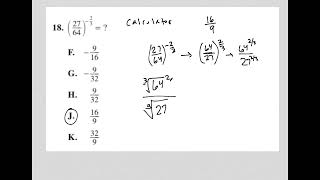 18. (27/64)^(-2/3) = ?
F. -9/16
G. -9/32
H. 9/32
J. 16/9
K. 32/9
Calculator
16/9
(27/64)^(-2/3) → (64/27)^(2/3) → 64^(2/3)/27^(2/3)
∛64^2
∛27